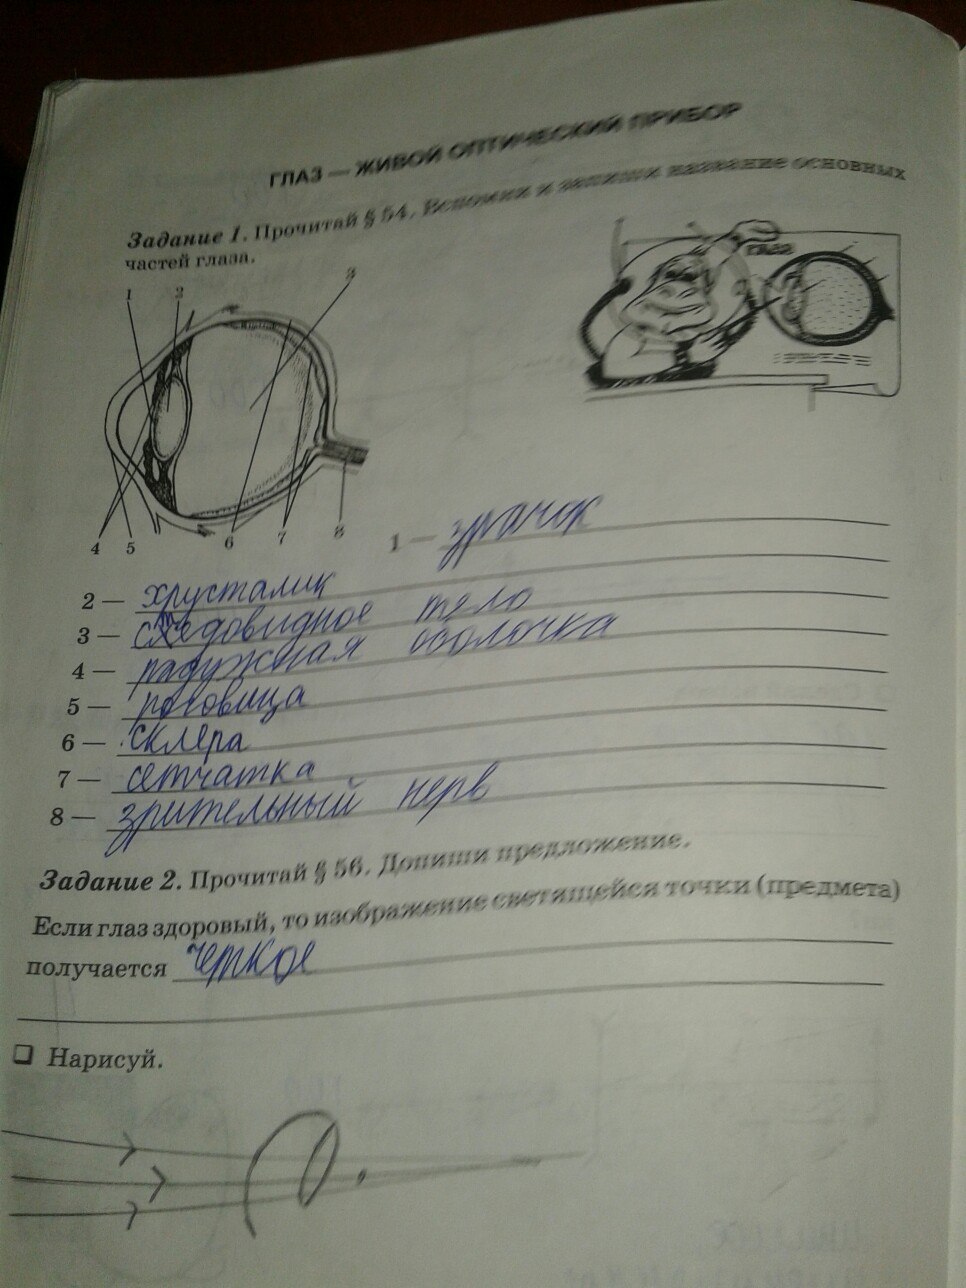 ГЛАЗ — ЖИВОЙ ОПТИЧЕСКИЙ ПРИБОР
Задание 1. Прочитай § 54. Вспомни и запиши название основных
частей глаза.
1 2 3
4 5 6 7 8
1 — зрачок
2 — хрусталик
3 — стедовидное тело
4 — радужная оболочка
5 — роговица
6 — склера
7 — сетчатка
8 — зрительный нерв
Задание 2. Прочитай § 56. Допиши предложение.
Если глаз здоровый, то изображение светящейся точки (предмета)
получается четкое
Нарисуй.